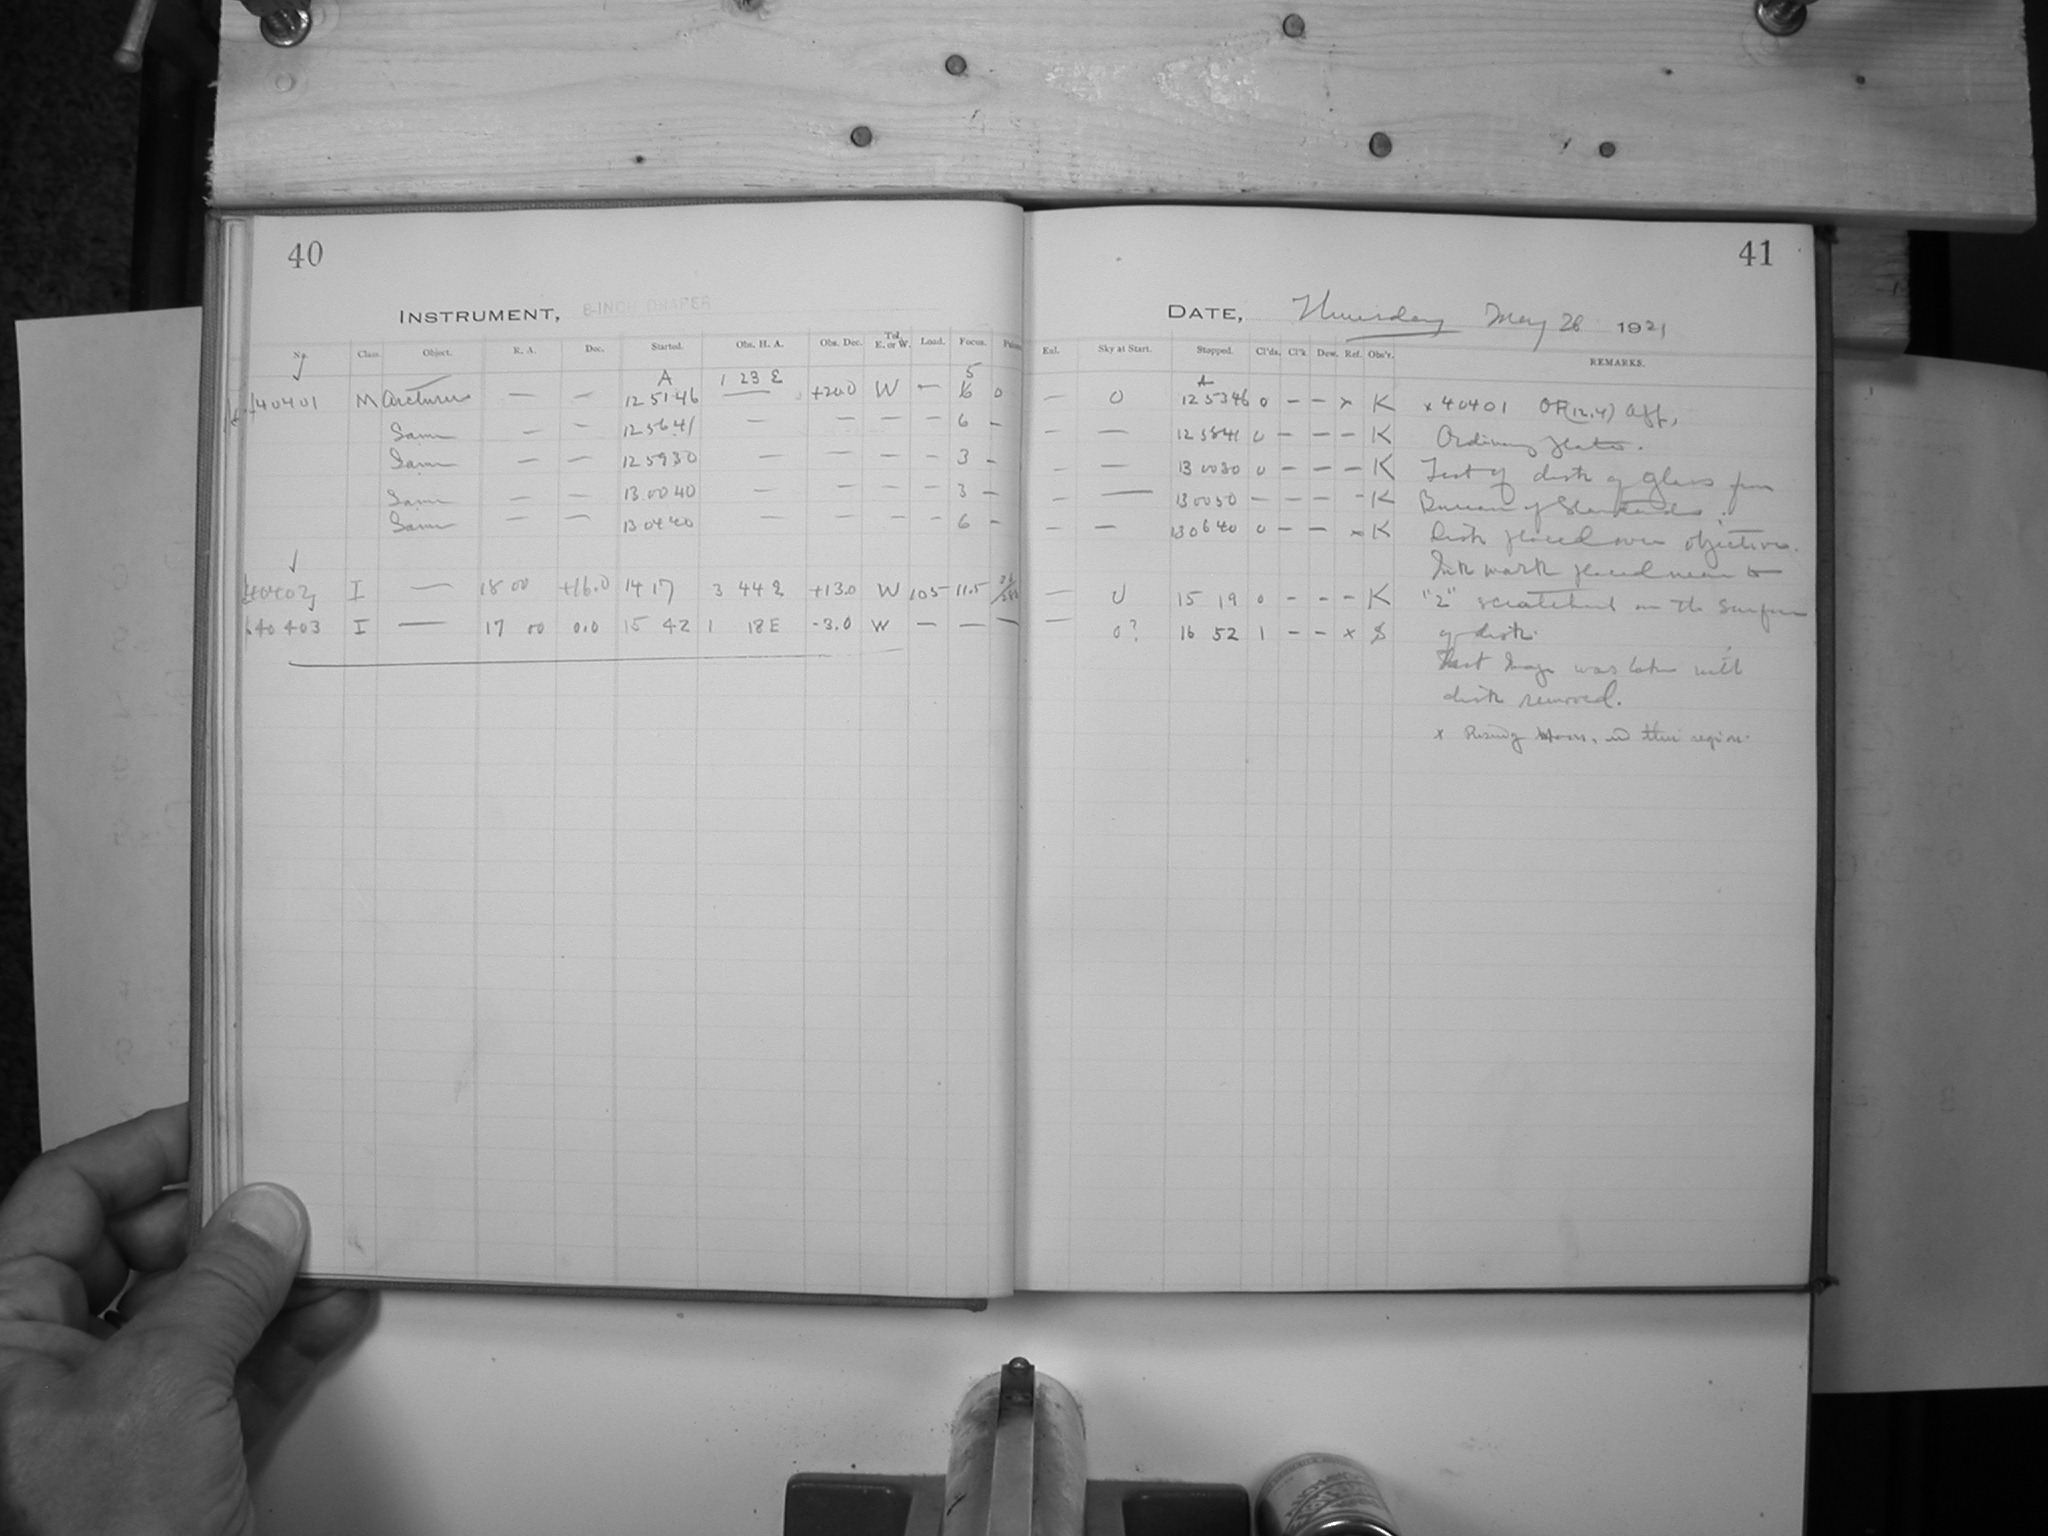 40
INSTRUMENT, 8-INCH DRAPER
No. Class. Object. R. A. Dec. Started. Obs. H. A. Obs. Dec. Tel. E. or W. Load. Focus.
A 1 23 E 5
40401 M Arcturus — — 12 51 46 — +20.0 W — 6 0
Same — — 12 56 41 — — — — 6 –
Same — — 12 59 30 — — — — 3 –
Same — — 13 00 40 — — — — 3 –
Same — — 13 04 40 — — — — 6 –
40402 I — 18 00 +16.0 14 17 3 44 E +13.0 W 105 11.5
40403 I — 17 00 0.0 15 42 1 18 E -3.0 W — — —
41
DATE, Thursday May 26 1921
Enl. Sky at Start. Stopped. Cl'ds. Cl'k Dew. Ref. Obs'r. REMARKS.
A
— 0 12 53 46 0 – – x K x 40401 OF(12.4) Aff,
— — 12 58 41 0 – – – K Ordinary plates.
— — 13 00 30 0 – – – K Test of disk of glass from
— — 13 00 50 – – – – K Bureau of Standards.
— — 13 06 40 0 – – x K Disk placed over objective.
Ink mark placed near to
— 0 15 19 0 – – – K "2" scratched on the surface
— 0? 16 52 1 – – x S of disk.
Last Image was taken with
disk removed.
x Rising Moon, in this region.